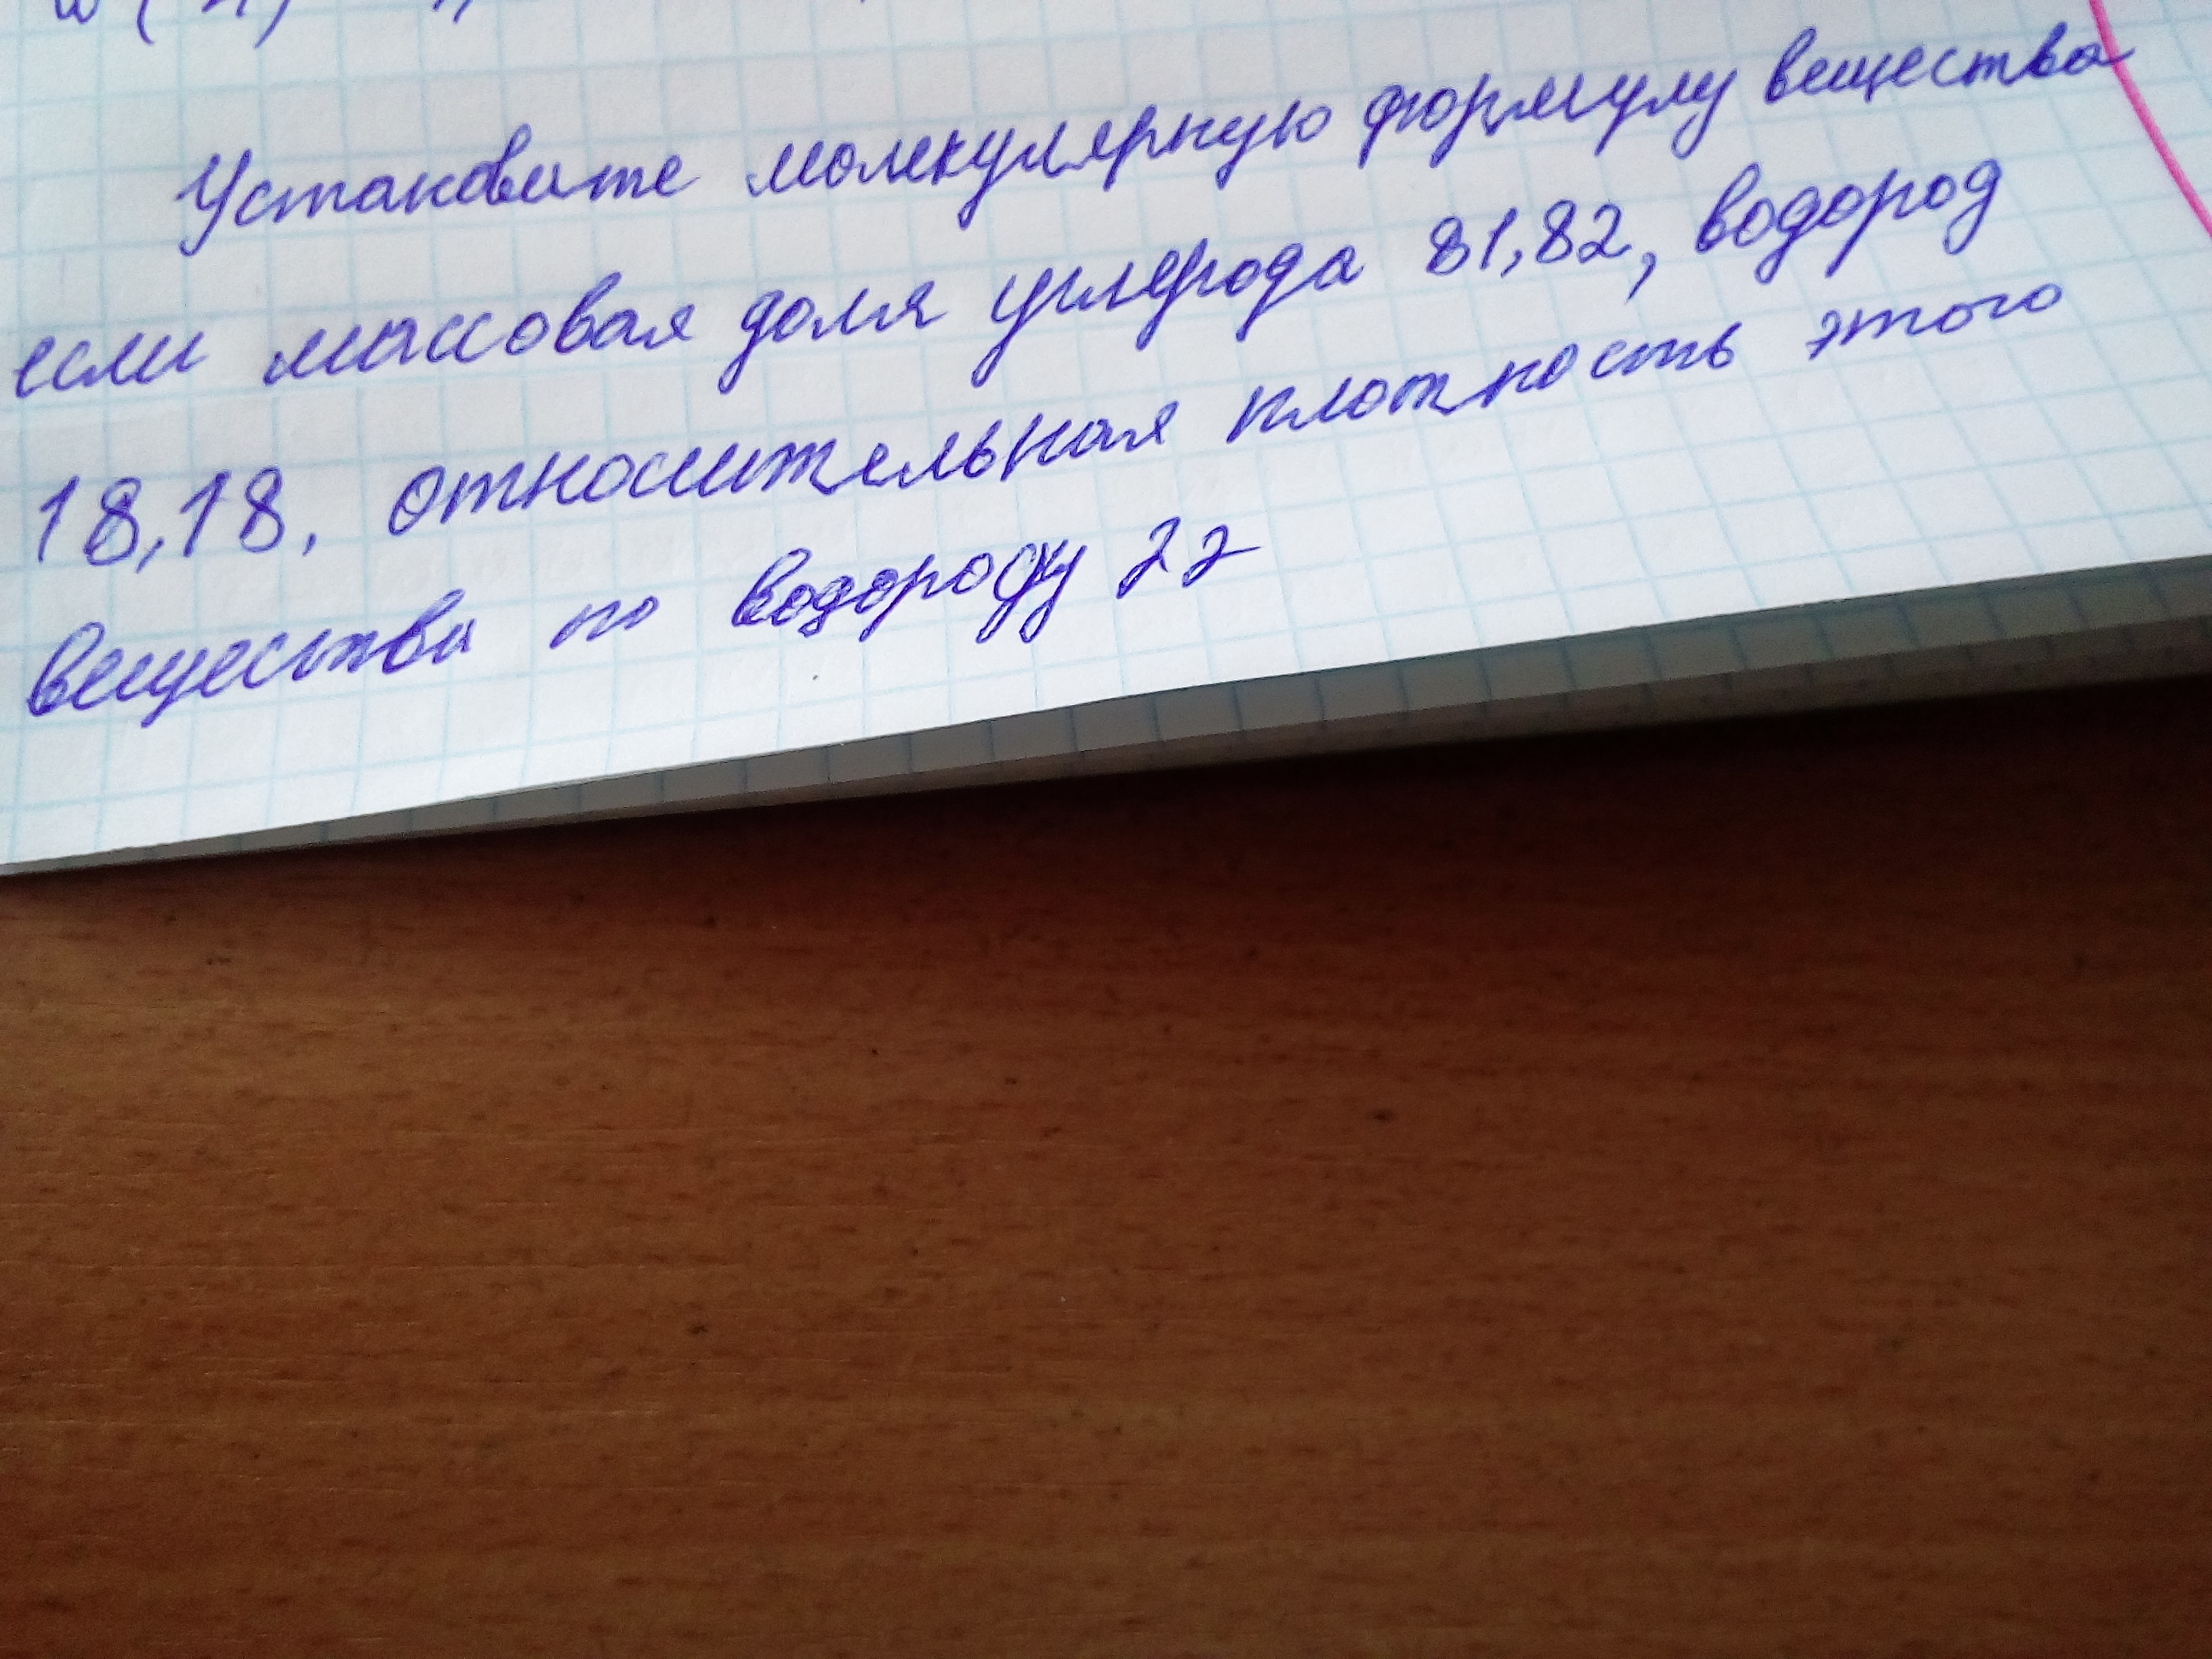 Установите молекулярную формулу вещества
если массовая доля углерода 81,82, водород
18,18. относительная плотность этого
вещества по водороду 22